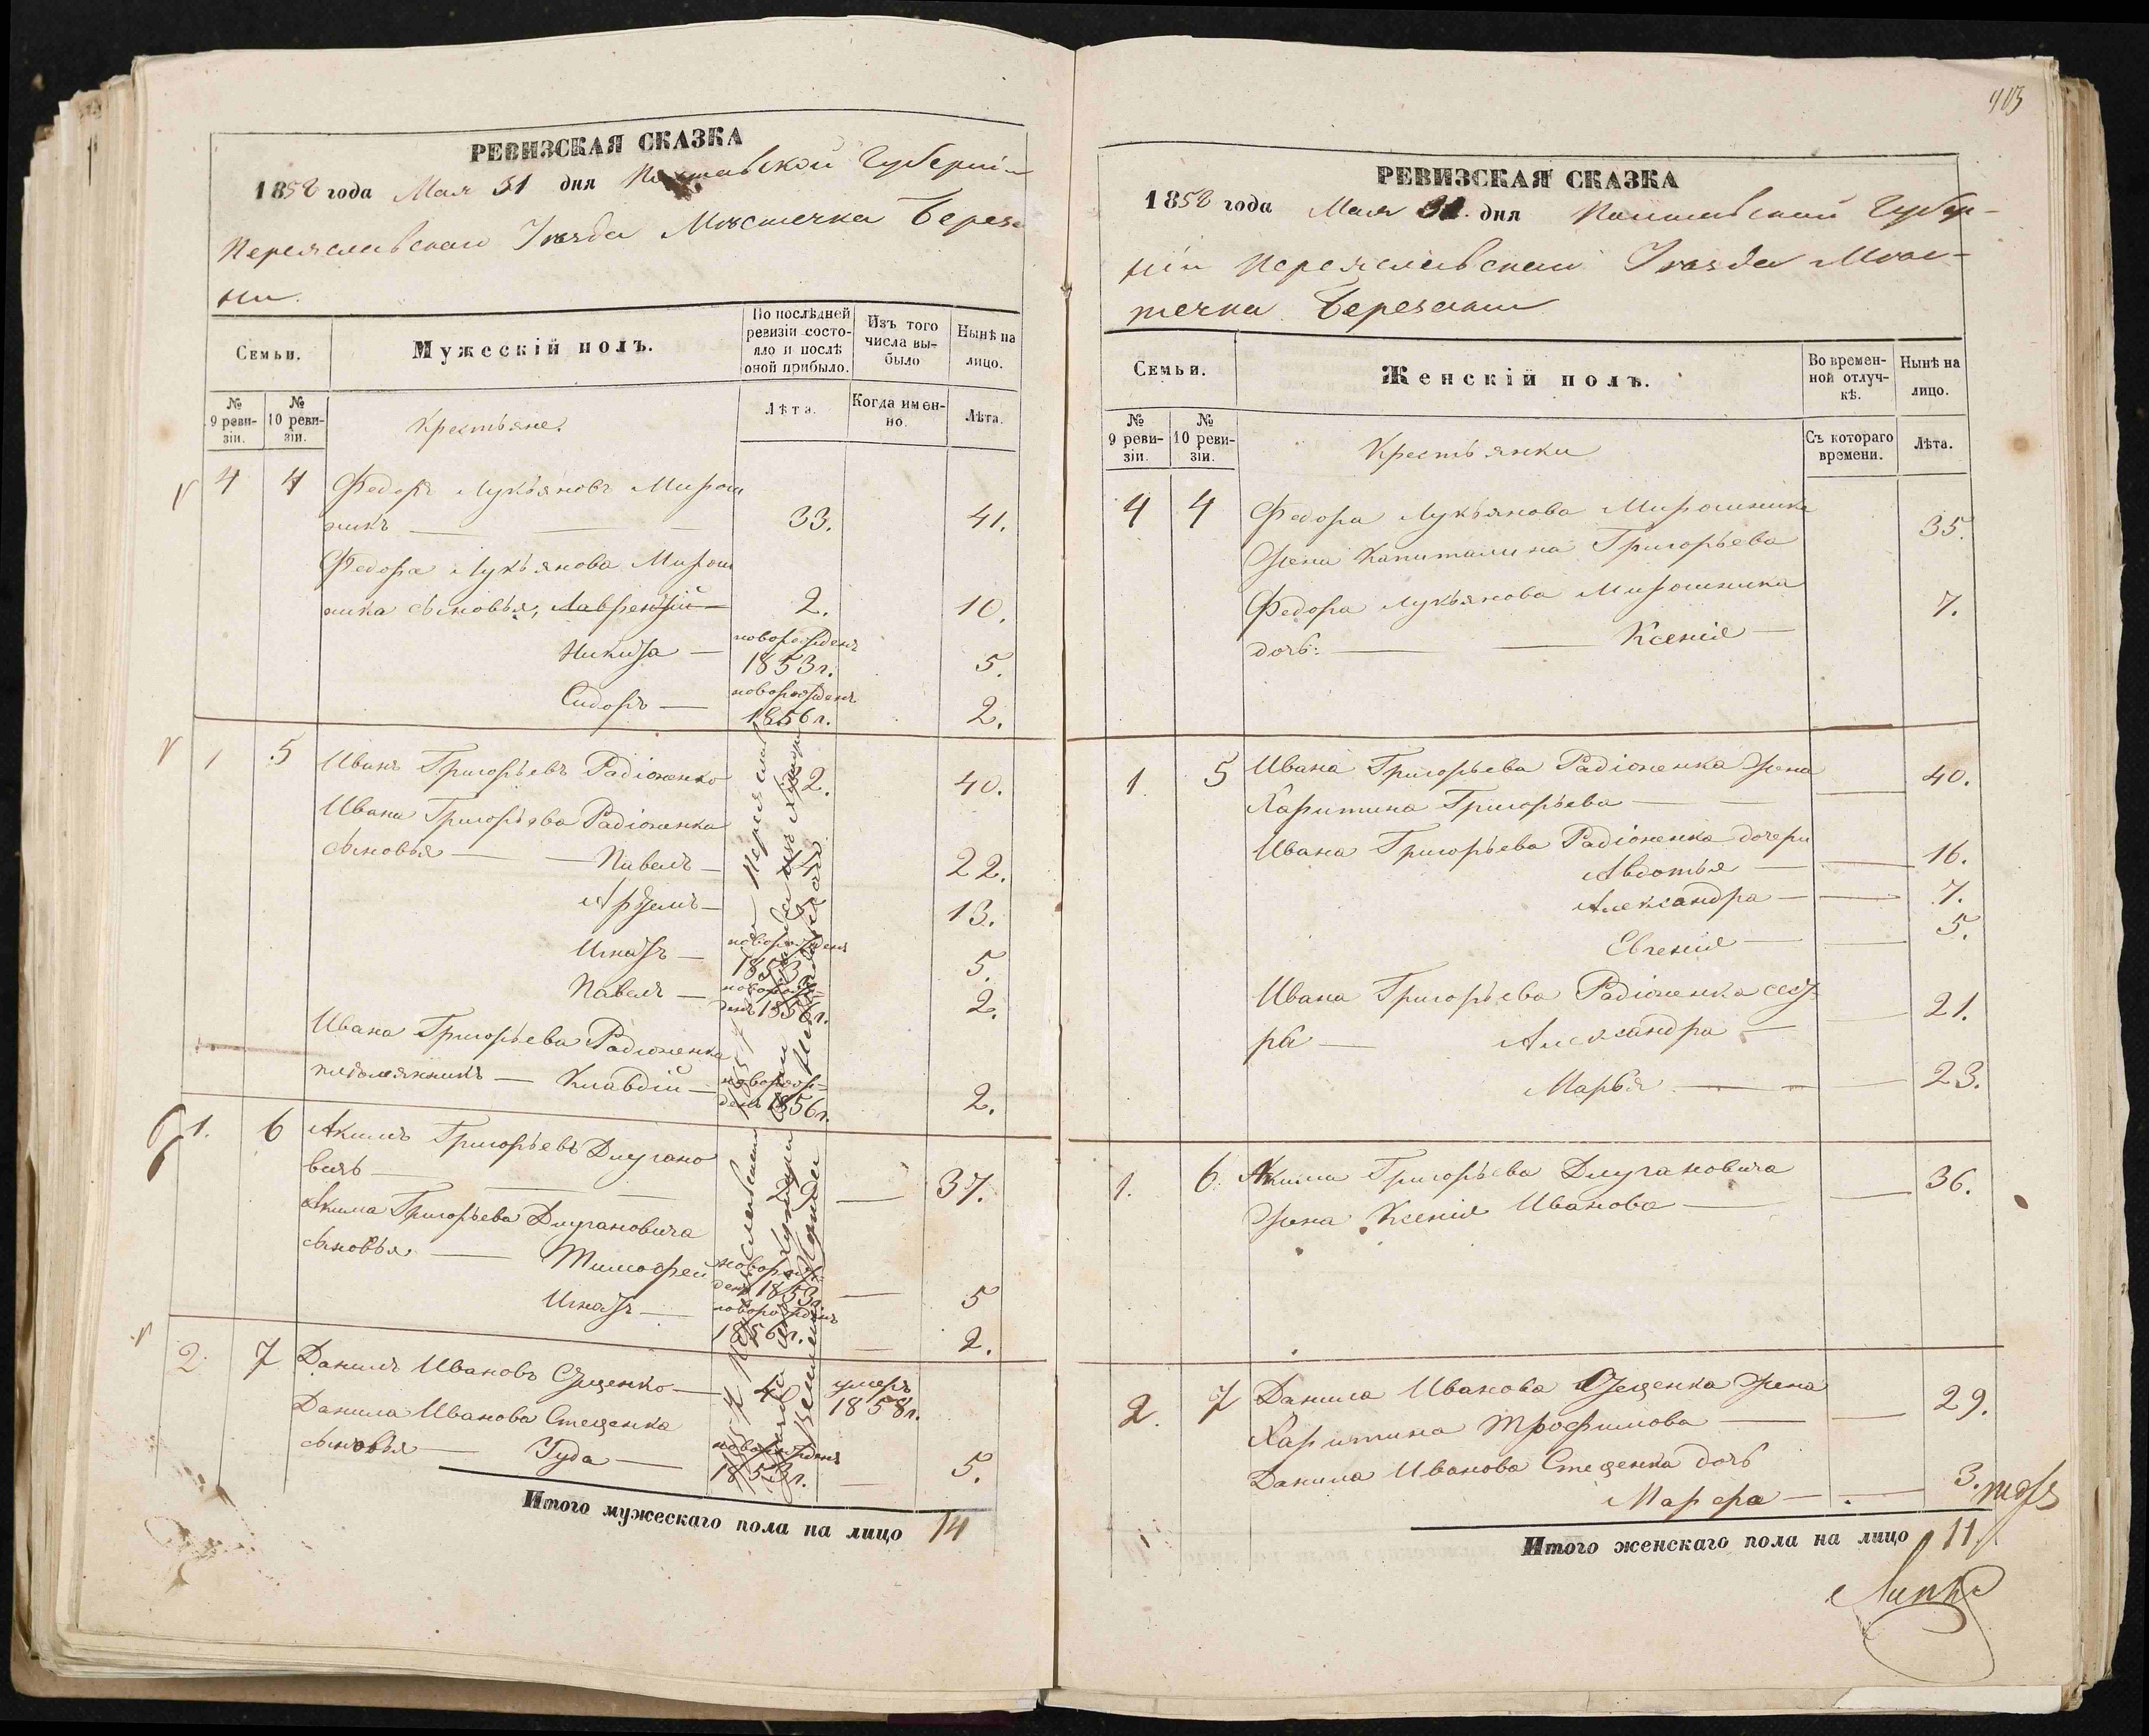 РЕВИЗСКАЯ СКАЗКА
1858 года Мая 31 дня Полтавской Губернiи
Переяславскаго Уѣзда Мѣстечка Березани
ни.
Семьи.
Мужескiй полъ.
По послѣдней ревизiи состояло и послѣ оной прибыло.
Изъ того числа выбыло
Нынѣ на лицо.
№ 9 ревизiи.
№ 10 ревизiи.
Крестьяне.
Лѣта.
Когда именно.
Лѣта.
4 4 Федоръ Лукьяновъ Мирош
никъ — 33. 41.
Федора Лукьянова Мирош
ника сыновья, Лаврентiй — 2. 10.
Никита — новорожденъ 1853 г. 5.
Сидоръ — новорожденъ 1856 г. 2.
1 5 Иванъ Григорьевъ Радiоненко 32. 40.
Ивана Григорьева Радiоненка
сыновья — Павелъ — 14 22.
Артемъ — 13.
Игнатъ — новорожденъ 1853 5.
Павелъ — новорожденъ 1856 г. 2.
Ивана Григорьева Радiоненка
племянникъ — Клавдiй — новорожденъ 1856 г. 2.
1. 6 Акимъ Григорьевъ Длугано
вичъ — 37.
Акима Григорьева Длугановича
сыновья — Тимофей новорожденъ 1853 г. — 5
Игнатъ — новорожденъ 1856 г. — 2.
2. 7 Данилъ Ивановъ Стеценко — 40 умеръ 1858 г.
Данила Иванова Стеценка
сыновья — Iуда — новорожденъ 1853 г. — 5.
Итого мужескаго пола на лицо 14
903
РЕВИЗСКАЯ СКАЗКА
1858 года Мая 31. дня Полтавской Губер-
нiи Переяславскаго Уѣзда Мѣс-
течка Березани
Семьи.
Женскiй полъ.
Во временной отлучкѣ.
Нынѣ на лицо.
№ 9 ревизiи.
№ 10 ревизiи.
Крестьянки
Съ котораго времени.
Лѣта.
4 4 Федора Лукьянова Мирошника
жена Капиталина Григорьева 35.
Федора Лукьянова Мирошника
дочь: — Ксенiя — 7.
1. 5 Ивана Григорьева Радiоненка жена
Харитина Григорьева — 40.
Ивана Григорьева Радiоненка дочери
Авдотья — 16.
Александра — 7.
Евгенiя — 5.
Ивана Григорьева Радiоненка сест
ра — Александра — 21.
Марья — 23.
1. 6. Акима Григорьева Длугановича
жена Ксенiя Иванова — 36.
2. 7 Данила Иванова Стеценка жена
Харитина Трофимова — 29.
Данила Иванова Стеценка дочь
Марфа — 3.
Итого женскаго пола на лицо 11